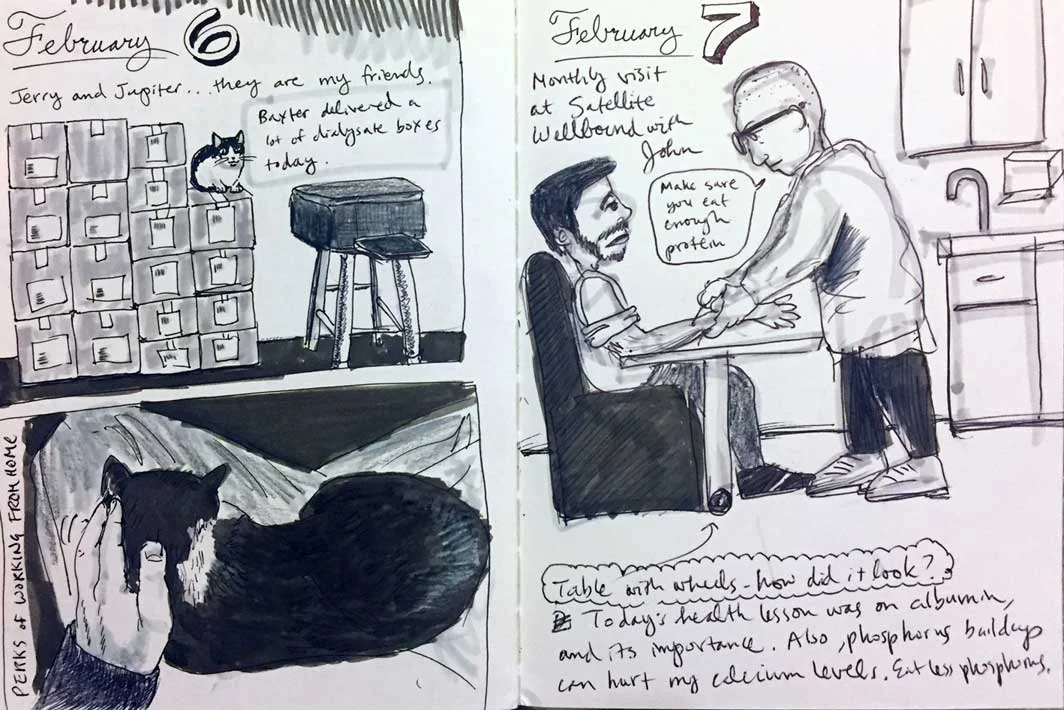 February 6
Jerry and Jupiter... they are my friends.
Baxter delivered a
lot of dialysate boxes
today.
PERKS of WORKING FROM HOME
February 7
Monthly visit
at Satellite
Wellbound with
John
Make sure
you eat
enough
protein
Table with wheels - how did it look?
Today's health lesson was on albumin,
and its importance. Also, phosphorus buildup
can hurt my calcium levels. Eat less phosphorus.